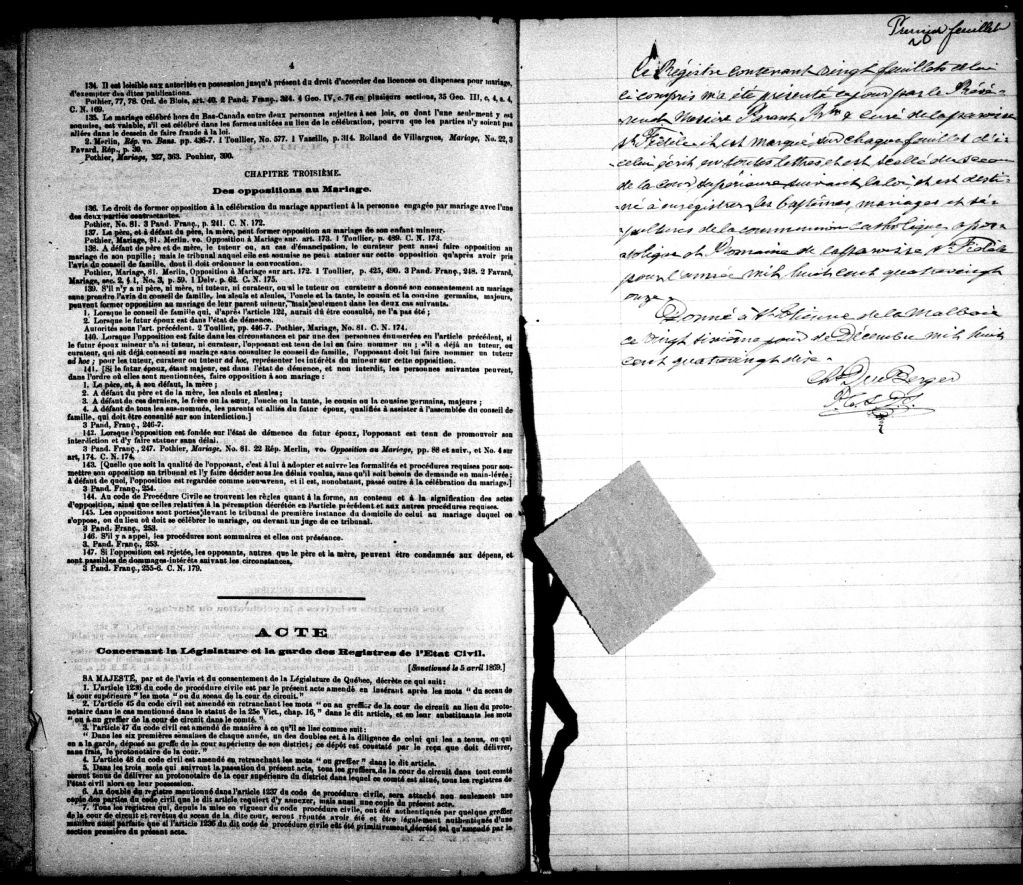 4
134. Il est loisible aux autorités en possession jusqu'à présent du droit d'accorder des licences ou dispenses pour mariage,
d'exempter des dites publications.
Pothier, 77, 78. Ord. de Blois, art. 40. 2 Pand. Franç., 324. 4 Geo. IV, c. 76 en plusieurs sections, 35 Geo. III, c. 4, s. 4,
C. N. 169.
135. Le mariage célébré hors du Bas-Canada entre deux personnes sujettes à ses lois, ou dont l'une seulement y est
soumise, est valable, s'il est célébré dans les formes usitées au lieu de la célébration, pourvu que les parties n'y soient pas
allées dans le dessein de faire fraude à la loi.
2 Merlin, Rép. vo. Bans. pp. 436-7. 1 Toullier, No. 577. 1 Vazeille, p. 314. Rolland de Villargues, Mariage, No. 22, 3
Favard. Rép., p. 36.
Pothier, Mariage, 327, 363. Pouhier, 390.
CHAPITRE TROISIÈME.
Des oppositions au Mariage.
136. Le droit de former opposition à la célébration du mariage appartient à la personne engagée par mariage avec l'une
des deux parties contractantes.
Pothier, No. 81. 3 Pand. Franç., p. 241. C. N. 172.
137. Le père, et à défaut du père, la mère, peut former opposition au mariage de son enfant mineur.
Pothier, Mariage, 81. Merlin. vo. Opposition à Mariage sur. art. 173. 1 Toullier, p. 489. C. N. 173.
138. A défaut de père et de mère, le tuteur ou, au cas d'émancipation, le curateur peut aussi faire opposition au
mariage de son pupille ; mais le tribunal auquel elle est soumise ne peut statuer sur cette opposition qu'après avoir pris
l'avis du conseil de famille, dont il doit ordonner la convocation.
Pothier, Mariage, 81. Merlin, Opposition à Mariage sur art. 172. 1 Toullier, p. 425, 490. 3 Pand. Franç., 248. 2 Favard,
Mariage, sec. 2, § 1, No. 3, p. 59. 1 Delv. p. 62. C. N. 175.
139. S'il n'y a ni père, ni mère, ni tuteur, ni curateur, ou si le tuteur ou curateur a donné son consentement au mariage
sans prendre l'avis du conseil de famille, les aïeuls et aïeules, l'oncle et la tante, le cousin et la cousine germains, majeurs,
peuvent former opposition au mariage de leur parent mineur, mais seulement dans les deux cas suivants.
1. Lorsque le conseil de famille qui, d'après l'article 122, aurait dû être consulté, ne l'a pas été ;
2. Lorsque le futur époux est dans l'état de démence.
Autorités sous l'art. précédent. 2 Toullier, pp. 446-7. Pothier, Mariage, No. 81. C. N. 174.
140. Lorsque l'opposition est faite dans les circonstances et par une des personnes énumérées en l'article précédent, si
le futur époux mineur n'a ni tuteur, ni curateur, l'opposant est tenu de lui en faire nommer un ; s'il a déjà un tuteur, ou
curateur, qui ait déjà consenti au mariage sans consulter le conseil de famille, l'opposant doit lui faire nommer un tuteur
ad hoc ; pour les tuteur, curateur ou tuteur ad hoc, représenter les intérêts du mineur sur cette opposition.
141. [Si le futur époux, étant majeur, est dans l'état de démence, et non interdit, les personnes suivantes peuvent,
dans l'ordre où elles sont mentionnées, faire opposition à son mariage :
1. Le père, et, à son défaut, la mère ;
2. A défaut du père et de la mère, les aïeuls et aïeules ;
3. A défaut de ces derniers, le frère ou la sœur, l'oncle ou la tante, le cousin ou la cousine germains, majeurs ;
4. A défaut de tous les sus-nommés, les parents et alliés du futur époux, qualifiés à assister à l'assemblée du conseil de
famille, qui doit être consulté sur son interdiction.]
3 Pand. Franç., 246-7.
142. Lorsque l'opposition est fondée sur l'état de démence du futur époux, l'opposant est tenu de promouvoir son
interdiction et d'y faire statuer sans délai.
3 Pand. Franç., 247. Pothier, Mariage. No. 81. 22 Rép. Merlin, vo. Opposition au Mariage, pp. 88 et suiv., et No. 4 sur
art, 174. C. N. 174.
143. [Quelle que soit la qualité de l'opposant, c'est à lui à adopter et suivre les formalités et procédures requises pour sou-
mettre son opposition au tribunal et l'y faire décider sous les délais voulus, sans qu'il soit besoin de demande en main-levée ;
à défaut de quoi, l'opposition est regardée comme non-avenue, et il est, nonobstant, passé outre à la célébration du mariage.]
3 Pand. Franç., 254.
144. Au code de Procédure Civile se trouvent les règles quant à la forme, au contenu et à la signification des actes
d'opposition, ainsi que celles relatives à la péremption décrétée en l'article précédent et aux autres procédures requises.
145. Les oppositions sont portées devant le tribunal de première instance du domicile de celui au mariage duquel on
s'oppose, ou du lieu où doit se célébrer le mariage, ou devant un juge de ce tribunal.
3 Pand. Franç., 253.
146. S'il y a appel, les procédures sont sommaires et elles ont préséance.
3. Pand. Franç., 253.
147. Si l'opposition est rejetée, les opposants, autres que le père et la mère, peuvent être condamnés aux dépens, et
sont passibles de dommages-intérêts suivant les circonstances.
3 Pand. Franç., 255-6. C. N. 179.
ACTE
Concernant la Législature et la garde des Registres de l'Etat Civil.
[Sanctionné le 5 avril 1869.]
SA MAJESTÉ, par et de l'avis et du consentement de la Législature de Québec, décrète ce qui suit :
1. L'article 1236 du code de procédure civile est par le présent acte amendé en insérant après les mots " du sceau de
la cour supérieure " les mots " ou du sceau de la cour de circuit. "
2. L'article 45 du code civil est amendé en retranchant les mots " ou au greffier de la cour de circuit au lieu du proto-
notaire dans le cas mentionné dans le statut de la 25e Vict., chap. 16, " dans le dit article, et en leur substituant les mots
" ou à un greffier de la cour de circuit dans le comté. "
3. l'article 47 du code civil est amendé de manière à ce qu'il se lise comme suit :
" Dans les six premières semaines de chaque année, un des doubles est à la diligence de celui qui les a tenus, ou qui
en a la garde, déposé au greffe de la cour supérieure de son district ; ce dépôt est constaté par le reçu que doit délivrer,
sans frais, le protonotaire de la cour. "
4. L'article 48 du code civil est amendé en retranchant les mots " ou greffier " dans le dit article.
5. Dans les trois mois qui suivront la passation du présent acte, tous les greffiers de la cour de circuit dans tout comté
seront tenus de délivrer au protonotaire de la cour supérieure du district dans lequel ce comté est situé, tous les registres de
l'état civil alors en leur possession.
6. Au double du registre mentionné dans l'article 1237 du code de procédure civile, sera attaché non seulement une
copie des parties du code civil que le dit article requiert d'y annexer, mais aussi une copie du présent acte.
7. Tous les registres qui, depuis la mise en vigueur du code procédure civile, ont été authentiqués par quelque greffier
de la cour de circuit et revêtus du sceau de la dite cour, seront réputés avoir été et être légalement authentiqués d'une
manière aussi parfaite que si l'article 1236 du dit code de procédure civile eût été primitivement décrété tel qu'amendé par la
section première du présent acte.
Premier feuillet
Ce Régistre contenant vingt feuillets celui
ci compris m'a été présenté ce jour par le Révé-
rend Messire Parant Ptre & curé de la paroisse
St Fidèle et est marqué sur chaque feuillet d'i-
celui écrit en toutes lettres et est scellé du sceau
de la cour supérieure suivant la loi, et est desti-
né à enregistrer les baptêmes mariages et sé-
pultures de la communion catholique, apos-
tolique et Romaine de la paroisse St Fidèle
pour l'année mil huit cent quatrevingt
onze.
Donné à St Etienne de la Malbaie
ce vingt sixième jour de Décembre mil huit
cent quatrevingt dix.
Chs Du Berger
P. C. S. D. S.